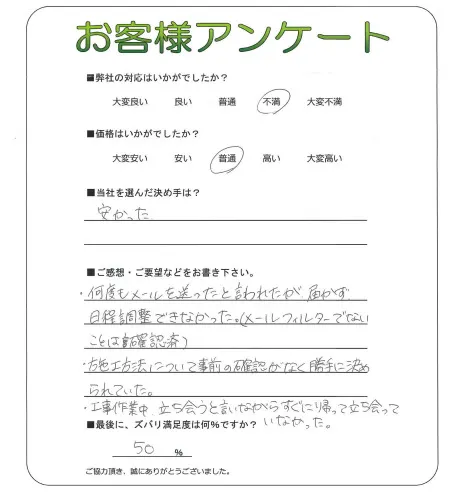 お客様アンケート
■弊社の対応はいかがでしたか?
大変良い 良い 普通 不満 大変不満
■価格はいかがでしたか?
大変安い 安い 普通 高い 大変高い
■当社を選んだ決め手は?
安かった
■ご感想・ご要望などをお書き下さい。
・何度もメールを送ったと言われたが届かず
日程調整できなかった。(メールフィルターでない
ことは確認済)
・施工方法について事前の確認がなく勝手に決め
られていた。
・工事作業中 立ち会うと言いながらすぐに帰って立ち会って
いなかった。
■最後に、ズバリ満足度は何%ですか?
50 %
ご協力頂き、誠にありがとうございました。